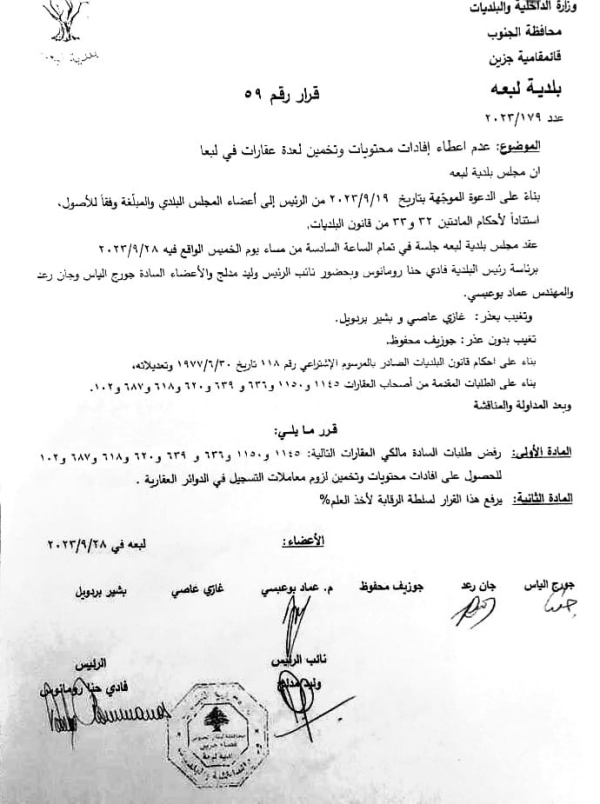 وزارة الداخلية والبلديات
محافظة الجنوب
قائمقامية جزين
بلدية لبعه
قرار رقم ٥٩
عدد ٢٠٢٣/١٧٩
الموضوع: عدم اعطاء إفادات محتويات وتخمين لعدة عقارات في لبعا
ان مجلس بلدية لبعه
بناءً على الدعوة الموجّهة بتاريخ ٢٠٢٣/٩/١٩ من الرئيس إلى أعضاء المجلس البلدي والمبلّغة وفقاً للأصول،
استناداً لأحكام المادتين ٣٢ و٣٣ من قانون البلديات.
عقد مجلس بلدية لبعه جلسة في تمام الساعة السادسة من مساء يوم الخميس الواقع فيه ٢٠٢٣/٩/٢٨
برئاسة رئيس البلدية فادي حنا رومانوس وبحضور نائب الرئيس وليد مدلج والأعضاء السادة جورج الياس وجان رعد
والمهندس عماد بوعبسي.
وتغيب بعذر: غازي عاصي و بشير بردويل.
تغيب بدون عذر: جوزيف محفوظ.
بناء على احكام قانون البلديات الصادر بالمرسوم الإشتراعي رقم ١١٨ تاريخ ١٩٧٧/٦/٣٠ وتعديلاته،
بناء على الطلبات المقدمة من أصحاب العقارات ١١٤٥ و١١٥٠ و٦٣٦ و ٦٣٩ و٦٢٠ و٦١٨ و٦٨٧ و١٠٢.
وبعد المداولة والمناقشة
قرر ما يلي:
المادة الأولى: رفض طلبات السادة مالكي العقارات التالية: ١١٤٥ و١١٥٠ و٦٣٦ و ٦٣٩ و٦٢٠ و٦١٨ و٦٨٧ و١٠٢
للحصول على افادات محتويات وتخمين لزوم معاملات التسجيل في الدوائر العقارية .
المادة الثانية: يرفع هذا القرار لسلطة الرقابة لأخذ العلم%
الأعضاء: لبعه في ٢٠٢٣/٩/٢٨
جورج الياس جان رعد جوزيف محفوظ م. عماد بوعبسي غازي عاصي بشير بردويل
نائب الرئيس الرئيس
وليد مدلج فادي حنا رومانوس